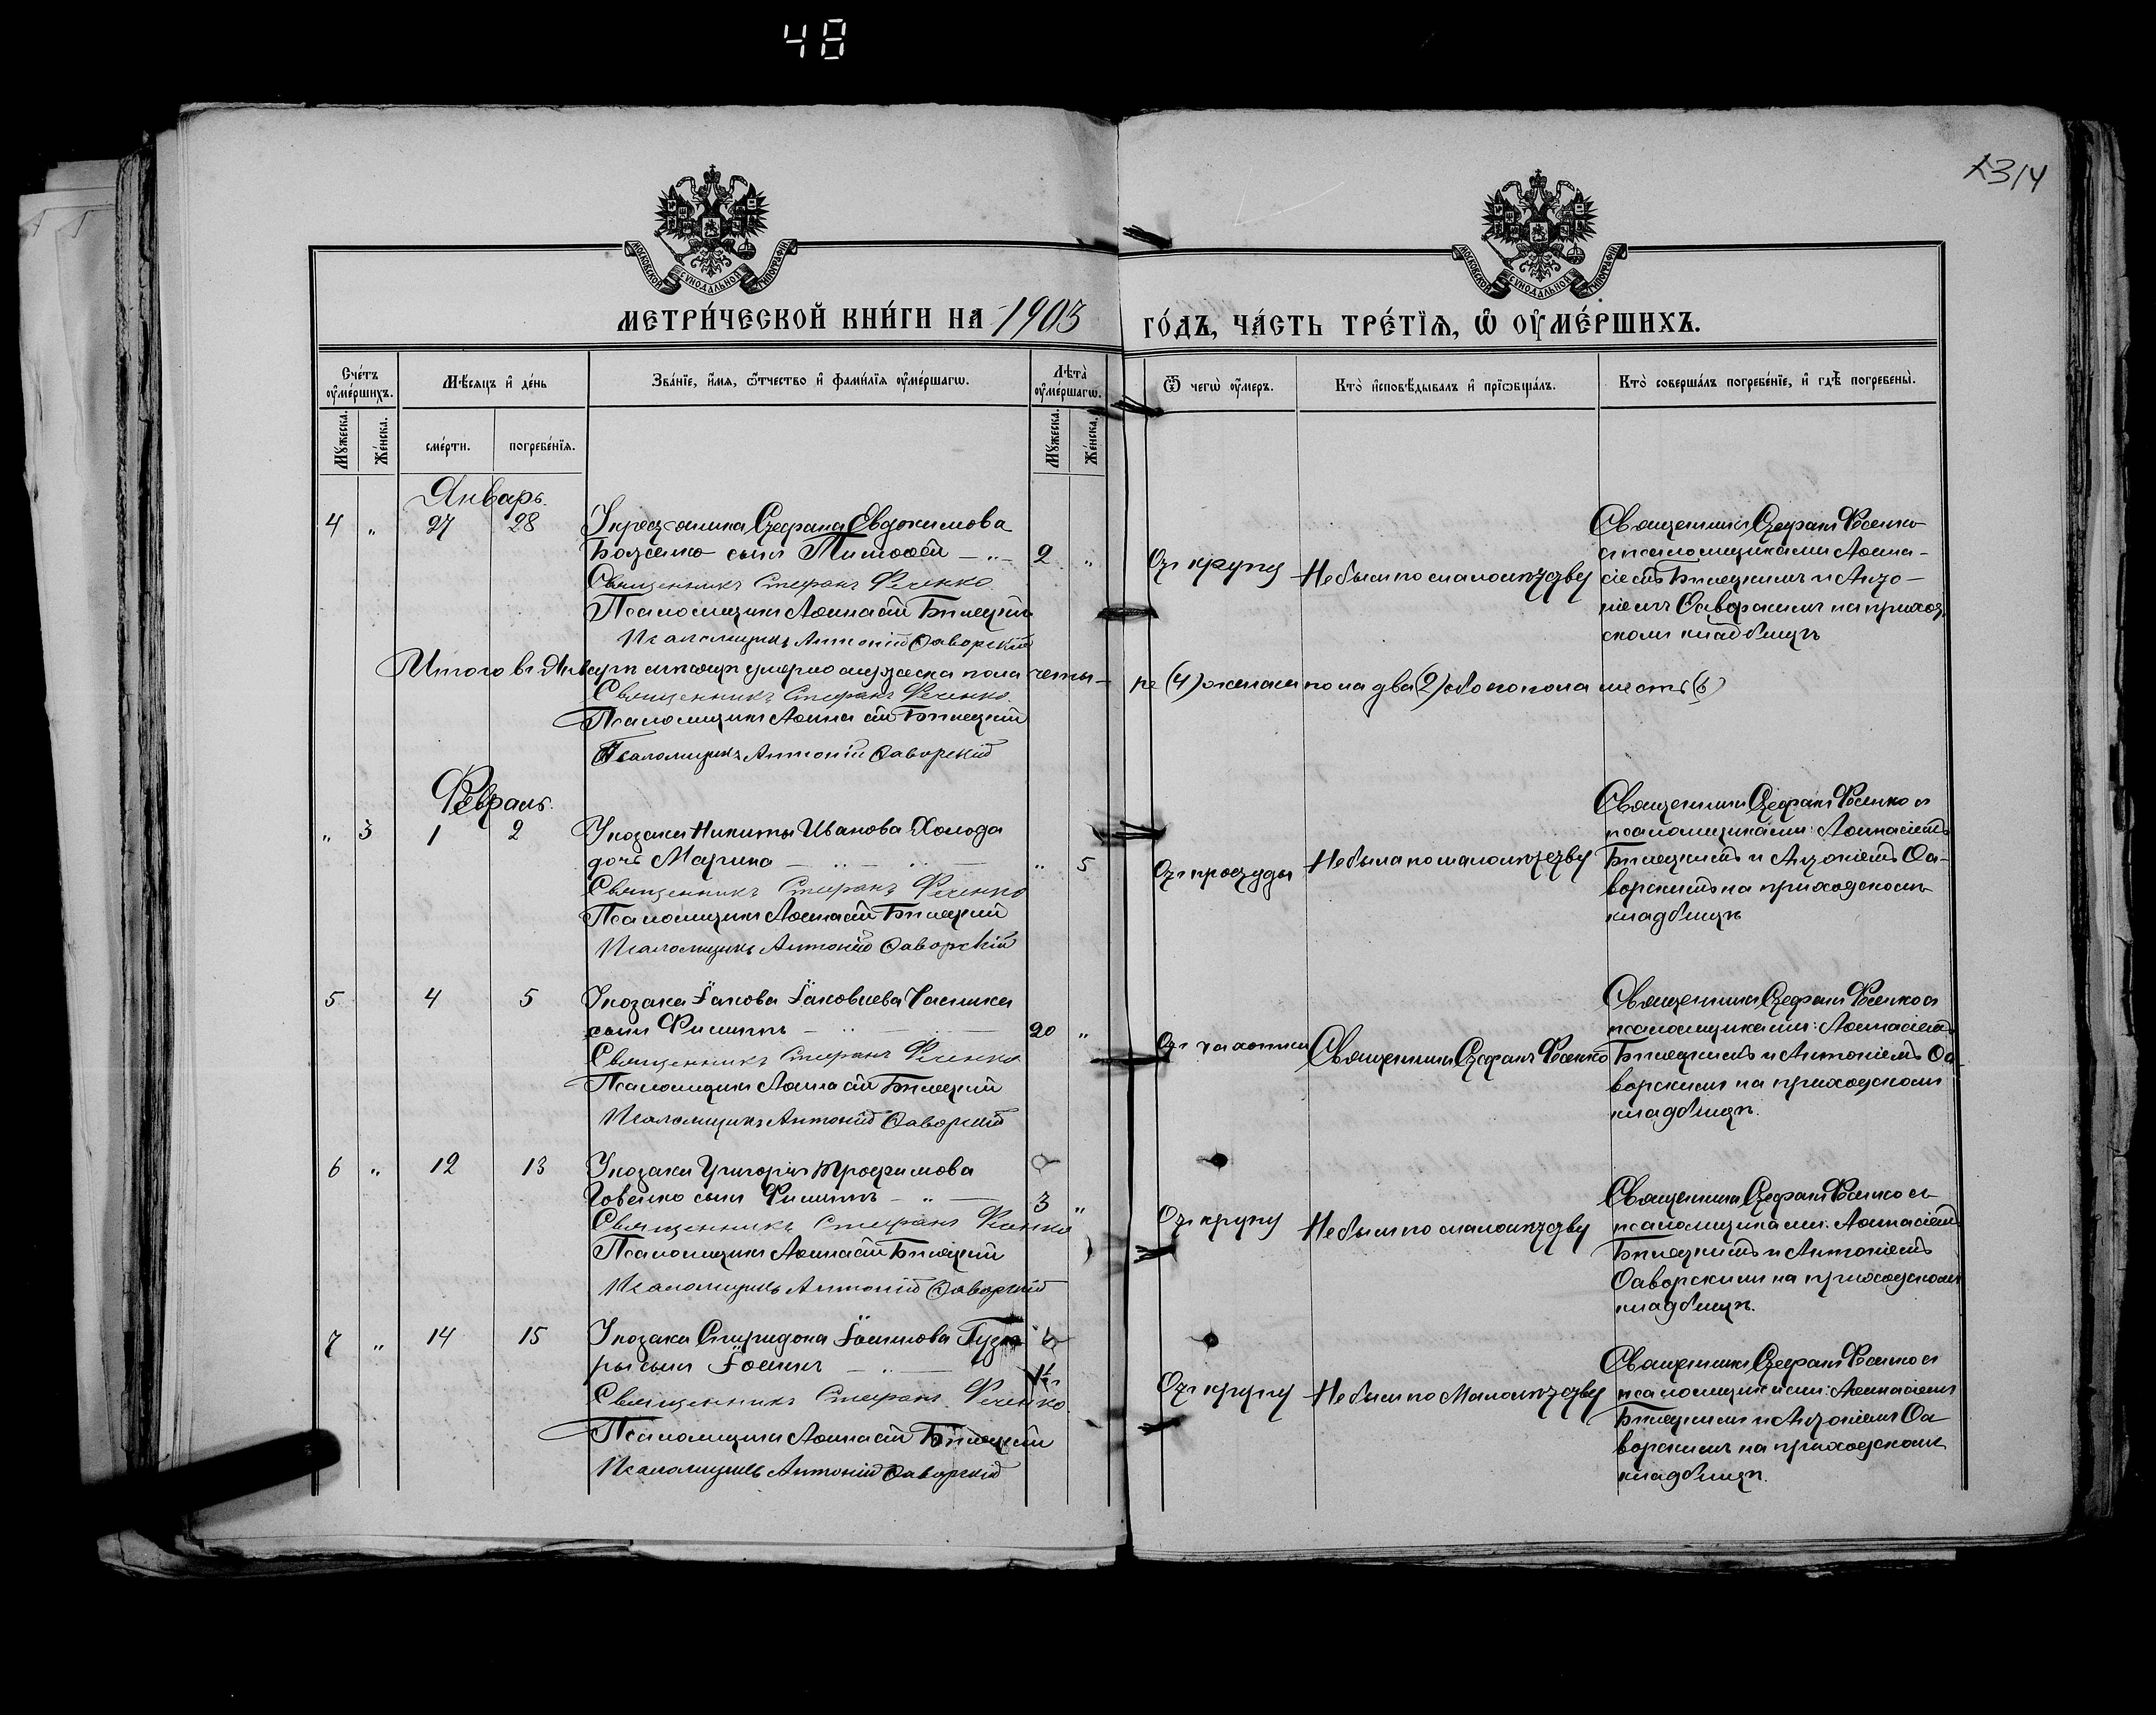 48
1314
МОСКОВСКОЙ СѴНОДАЛЬНОЙ ТИПОГРАФІИ
МОСКОВСКОЙ СѴНОДАЛЬНОЙ ТИПОГРАФІИ
МЕТРИ́ЧЕСКОЙ КНИ́ГИ НА 1903
ГО́ДЪ, ЧА́СТЬ ТРЕ́ТЇѦ, Ѡ҆ ОУ҆МЕ́РШИХЪ.
Сче́тъ оу҆ме́ршихъ.
Мѣ́сяцъ и҆ де́нь
Зва́нїе, и҆́мя, ѻ҆́тчество и҆ фами́лїя оу҆ме́ршагѡ.
Лѣта̀ оу҆ме́ршагѡ.
Ѿ чегѡ̀ оу҆́меръ.
Кто̀ и҆сповѣ́дывалъ и҆ прїѡбща́лъ.
Кто̀ соверша́лъ погребе́нїе, и҆ гдѣ̀ погребены̀.
Мꙋ́жеска.
Же́нска.
сме́рти.
погребе́нїя.
Мꙋ́жеска.
Же́нска.
Январь.
4 " 27 28 У крестьянина Стефана Евдокимова
сынъ Тимофей — " — 2 "
Священникъ Стефанъ Фесенко
Псаломщикъ Аѳанасій Билецкій
Псаломщикъ Антоній Ѳаворскій
Отъ крупу
Не былъ по малолѣтству
Священникъ Стефанъ Фесенко
съ псаломщиками Аѳана-
сіемъ Билецкимъ и Анто-
ніемъ Ѳаворскимъ на приход
скомъ кладбищѣ
Итого въ Январѣ мѣсяцѣ умерло мужеска пола четы-
ре (4) женска пола два (2) обоего пола шесть (6)
Священникъ Стефанъ Фесенко
Псаломщикъ Аѳанасій Билецкій
Псаломщикъ Антоній Ѳаворскій
Февраль.
" 3 1 2 У козака Никиты Иванова Холода
дочь Марина — " — " — " 5
Священникъ Стефанъ Фесенко
Псаломщикъ Аѳанасій Билецкій
Псаломщикъ Антоній Ѳаворскій
Отъ простуды
Не была по малолѣтству
Священникъ Стефанъ Фесенко съ
псаломщиками: Аѳанасіемъ
Билецкимъ и Антоніемъ Ѳа-
ворскимъ на приходскомъ
кладбищѣ
5 4 5 У козака Іакова Іаковлева
сынъ Филиппъ — " — " — 20 "
Священникъ Стефанъ Фесенко
Псаломщикъ Аѳанасій Билецкій
Псаломщикъ Антоній Ѳаворскій
Отъ чахотки
Священникъ Стефанъ Фесенко
Священникъ Стефанъ Фесенко съ
псаломщиками: Аѳанасіемъ
Билецкимъ и Антоніемъ Ѳа-
ворскимъ на приходскомъ
кладбищѣ.
6 " 12 13 У козака Григорія Трофимова
сынъ Филиппъ — " — 3 "
Священникъ Стефанъ Фесенко
Псаломщикъ Аѳанасій Билецкій
Псаломщикъ Антоній Ѳаворскій
Отъ крупу
Не былъ по малолѣтству
Священникъ Стефанъ Фесенко съ
псаломщиками: Аѳанасіемъ
Билецкимъ и Антоніемъ
Ѳаворскимъ на приходскомъ
кладбищѣ.
7 " 14 15 У козака Спиридона Іоаннова
ры сынъ Іоаннъ — " —
Священникъ Стефанъ Фесенко
Псаломщикъ Аѳанасій Билецкій
Псаломщикъ Антоній Ѳаворскій
Отъ крупу
Не былъ по Малолѣтству
Священникъ Стефанъ Фесенко съ
псаломщиками: Аѳанасіемъ
Билецкимъ и Антоніемъ Ѳа-
ворскимъ на приходскомъ
кладбищѣ.